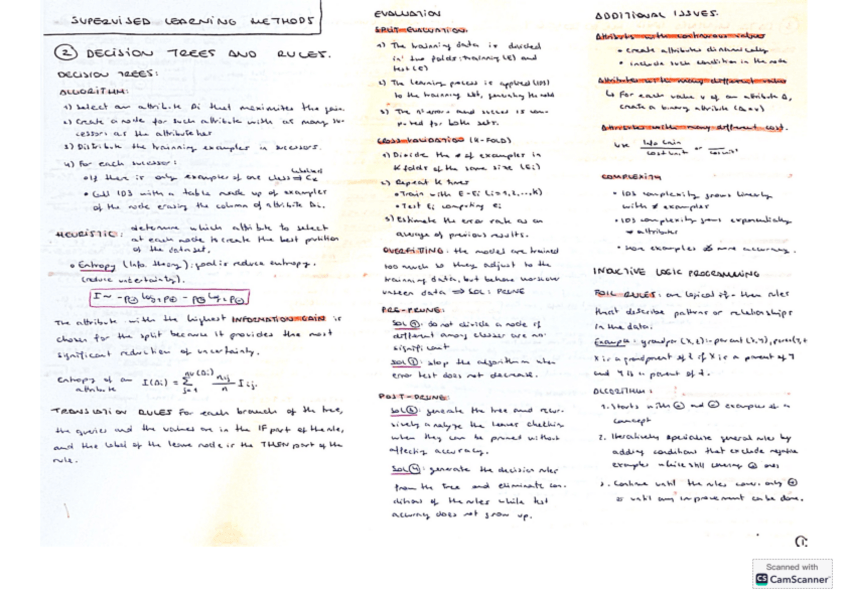 SUPERVISED LEARNING METHODS
② DECISION TREES AND RULES.
DECISION TREES:
ALGORITHM:
1) Select an attribute Ai that maximizes the gain.
2) Create a node for such attribute with as many suc-
cessors as the attribute has
3) Distribute the training examples in sucessors.
4) For each sucessor:
• If there is only examples of one class ⇒ Ck
• Call ID3 with a table made up of examples
of the node erasing the column of attribute Ai.
HEURISTIC: determine which attribute to select
at each node to create the best partition
of the dataset.
• Entropy (Info. theory): goal is reduce entropy.
(reduce uncertainty).
The attribute with the highest INFORMATION GAIN is
chosen for the split because it provides the most
significant reduction of uncertainty.
Entropy of an attribute I(Ai) = Σ nij/n Iij.
TRANSLATION RULES For each branch of the tree,
the queries and the values are in the IF part of the rule,
and the label of the leave node is the THEN part of the
rule.
EVALUATION
SPLIT EVALUATION:
1) The training data is divided
in two folds: training (E) and
test (E)
2) The learning process is applied
to the training set, generating
3) The nº errors and sucess is com-
puted for both sets.
CROSS VALIDATION (K-FOLD)
1) Divide the # of examples in
K folds of the same size (Ei)
2) Repeat K times
• Train with E-Ei (i=1,2,...,K)
• Test Ei computing ei
3) Estimate the error rate as an
average of previous results.
OVERFITTING: the model are trained
too much so they adjust to the
training data, but behave worse
unseen data ⇒ SOL: PRUNE
PRE-PRUNE:
do not divide a node if
different among classes are no
significant
stop the algorithm when
error test does not decrease.
POST-PRUNE:
generate the tree and recur-
sively analyze the leaves checking
when they can be pruned without
affecting accuracy.
SOL④: generate the decision rules
from the tree and eliminate con-
ditions of the rules while test
accuracy does not grow up.
ADDITIONAL ISSUES.
Attributes with continuous values
• create attributes dinamically
• include such condition in the node
Attributes with many different values
↳ For each value v of an attribute A,
create a binary attribute (A=v)
Attributes with many different cost.
Use info gain / cost or
COMPLEXITY
• ID3 complexity grows linearly
with # examples
• ID3 complexity grows exponentially
# attributes
• more examples more accuracy.
INDUCTIVE LOGIC PROGRAMMING
FOIL RULES: are logical if-then rules
that describe patterns or relationships
in the data:
X is a grandparent of Z if X is a parent of Y
and Y is a parent of Z.
ALGORITHM:
1. Starts with ⊕ and ⊖ examples of a
concept
2. Iteratively specialize general rules by
adding conditions that exclude negative
examples while still covering ⊕ ones
3. Continue until the rules cover only ⊕
or until any improvement can be done.
Scanned with
CS CamScanner